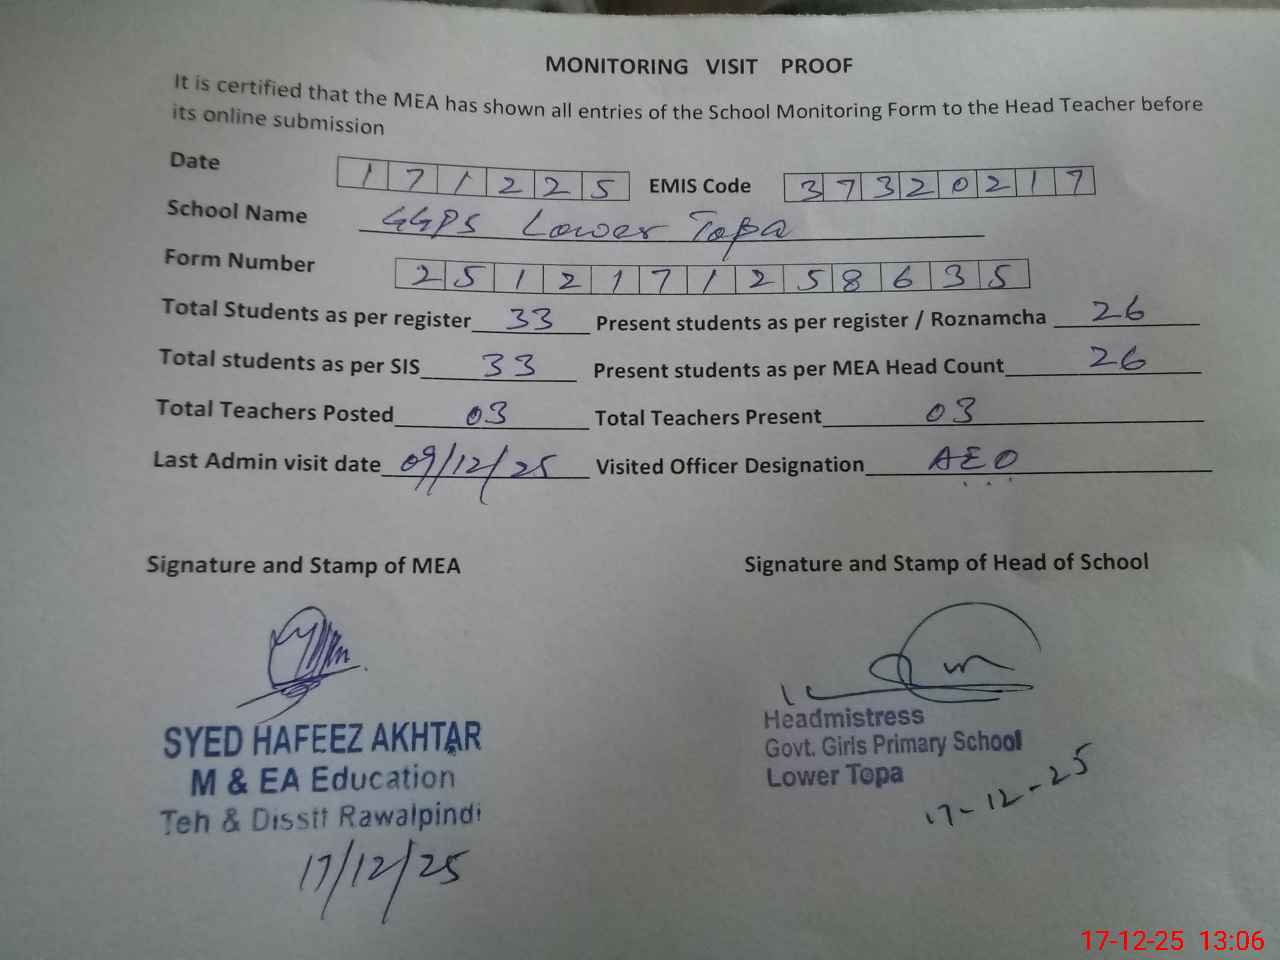 MONITORING VISIT PROOF
It is certified that the MEA has shown all entries of the School Monitoring Form to the Head Teacher before
its online submission
Date 171225 EMIS Code 37320217
School Name GGPS Lower Topa
Form Number 2512171258635
Total Students as per register 33 Present students as per register / Roznamcha 26
Total students as per SIS 33 Present students as per MEA Head Count 26
Total Teachers Posted 03 Total Teachers Present 03
Last Admin visit date 09/12/25 Visited Officer Designation AEO
Signature and Stamp of MEA Signature and Stamp of Head of School
SYED HAFEEZ AKHTAR
M & EA Education
Teh & Disstt Rawalpindi
17/12/25
Headmistress
Govt. Girls Primary School
Lower Topa
17-12-25
17-12-25 13:06